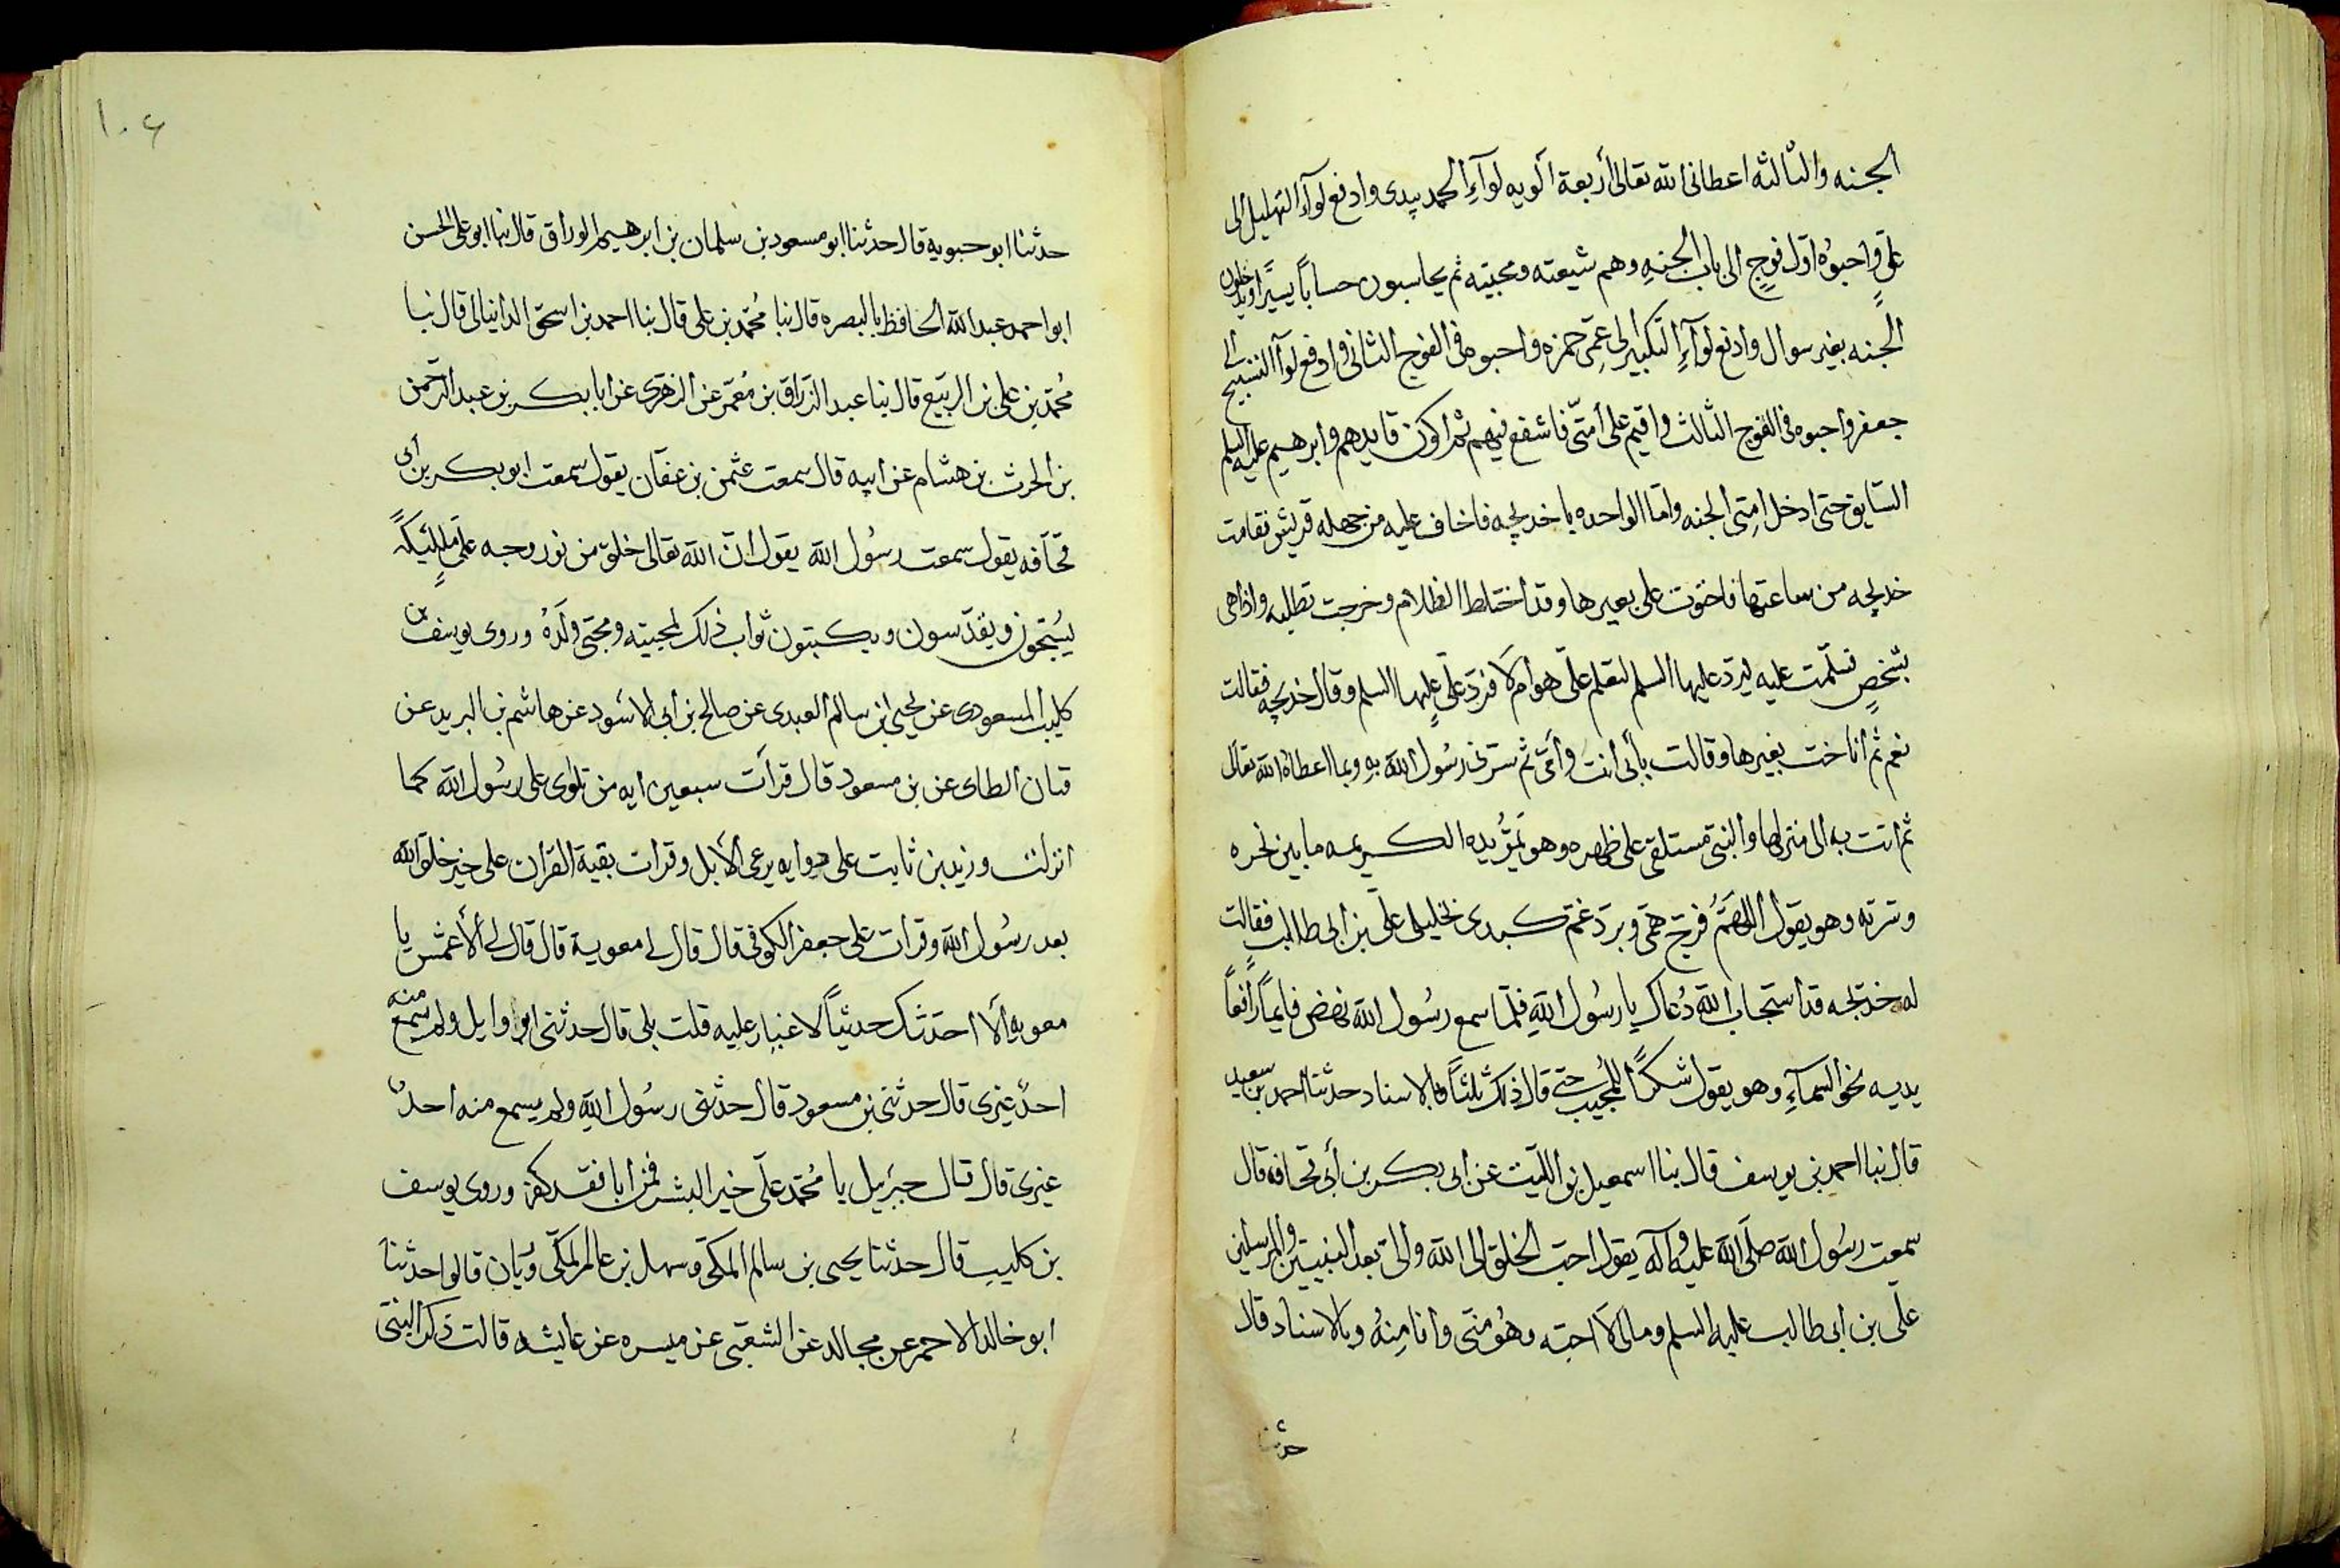 الجنه والثالثه اعطانى الله تعالى أربعة ألويه لوآء الحمد بيدى وادفع لوآء التهليل الى
على واحبوه اول فوج الى باب الجنه وهم شيعته ومحبيه ثم يحاسبون حساباً يسيراً ويدخلون
الجنه بغير سوال وادفع لوآء التكبير الى عمى حمزه واحبوه فى الفوج الثانى وادفع لوآء التسبيح الى
جعفر واحبوه فى الفوج الثالث واقيم على أمتى فاشفع فيهم ثم اكون قايدهم وابرهيم عليه السلم
السايق حتى ادخل امتى الجنه واما الواحده يا خديجه فاخاف عليه من جهله قريش فقامت
خديجه من ساعتها فاحوت على بعيرها وقد اختلط الظلام وخرجت تطلبه واذا هى
بشخص فسلمت عليه ليرد عليها السلم لتعلم على هو ام لا فرد على عليها السلم وقال خديجه فقالت
نعم ثم اناخت بعيرها وقالت بأبى انت وأمى ثم سرنى رسول الله به وبما اعطاه الله تعالى
ثم اتت به الى منزلها والنبى مستلقى على ظهره وهو يمر يده الكريمه ما بين نحره
وسرته وهو يقول اللهم فرج همى وبرد غم كبدى بخليلى على بن ابى طالب فقالت
له خديجه قد استجاب الله دعاك يا رسول الله فلما سمع رسول الله نهض قايماً رافعاً
يديه نحو السمآء وهو يقول شكرًا للمجيب حتى قال ذلك ثلثاً وبالاسناد حدثنا احمد بن سعيد
قال نبا احمد بن يوسف قال نبا اسمعيل بن الليث عن ابى بكر بن أبى قحافه قال
سمعت رسول الله صلى الله عليه وآله يقول احب الخلق الى الله والى بعد النبيين والمرسلين
على بن ابى طالب عليه السلم ومالى لا احبه وهو منى وأنا منه وبالاسناد قال
حدثنا
١٠٦
حدثنا ابو حبويه قال حدثنا ابو مسعود بن سلمان بن ابرهيم الوراق قال نبا ابو على الحسن
ابو احمد عبد الله الحافظ بالبصره قال نبا محمد بن على قال نبا احمد بن اسحق الدانيالى قال نبا
محمد بن على بن الربيع قال نبا عبد الرزاق بن معمر عن الزهرى عن ابا بكر بن عبد الرحمن
بن الحرث بن هشام عن ابيه قال سمعت عثمن بن عفان يقول سمعت ابو بكر بن أبى
قحافه يقول سمعت رسول الله يقول ان الله تعالى خلق من نور وجه على مليكة
يسبحون ويقدسون ويكتبون ثواب ذلك لمحبيه ومحبى ولده وروى يوسف بن
كليب المسعودى عن يحيى ابن سالم العبدى عن صالح بن ابى الاسود عن هاشم بن البريد عن
الطاى عن بن مسعود قال قرأت سبعين ايه من تلوى على رسول الله كما
انزلت وزيد بن ثابت على يرعى الأبل وقرات بقية القران على خير خلق الله
بعد رسول الله وقرات على جعفر الكوفى قال قال لى معوية قال قال لى الأعمش يا
معويه ألا احدثك حديثاً لا غبار عليه قلت بلى قال حدثنى ابو وايل ولم يسمع منه
احد غيرى قال حدثنى بن مسعود قال حدثنى رسول الله ولم يسمع منه احد
غيرى قال قال جبرئيل يا محمد على خير البشر فمن ابا فقد كفر وروى يوسف
بن كليب قال حدثنا يحيى بن سالم المكى وسهل بن عامر المكى قالوا حدثنا
ابو خالد الاحمر عن مجالد عن الشعبى عن ميسره عن عايشه قالت ذكر النبى